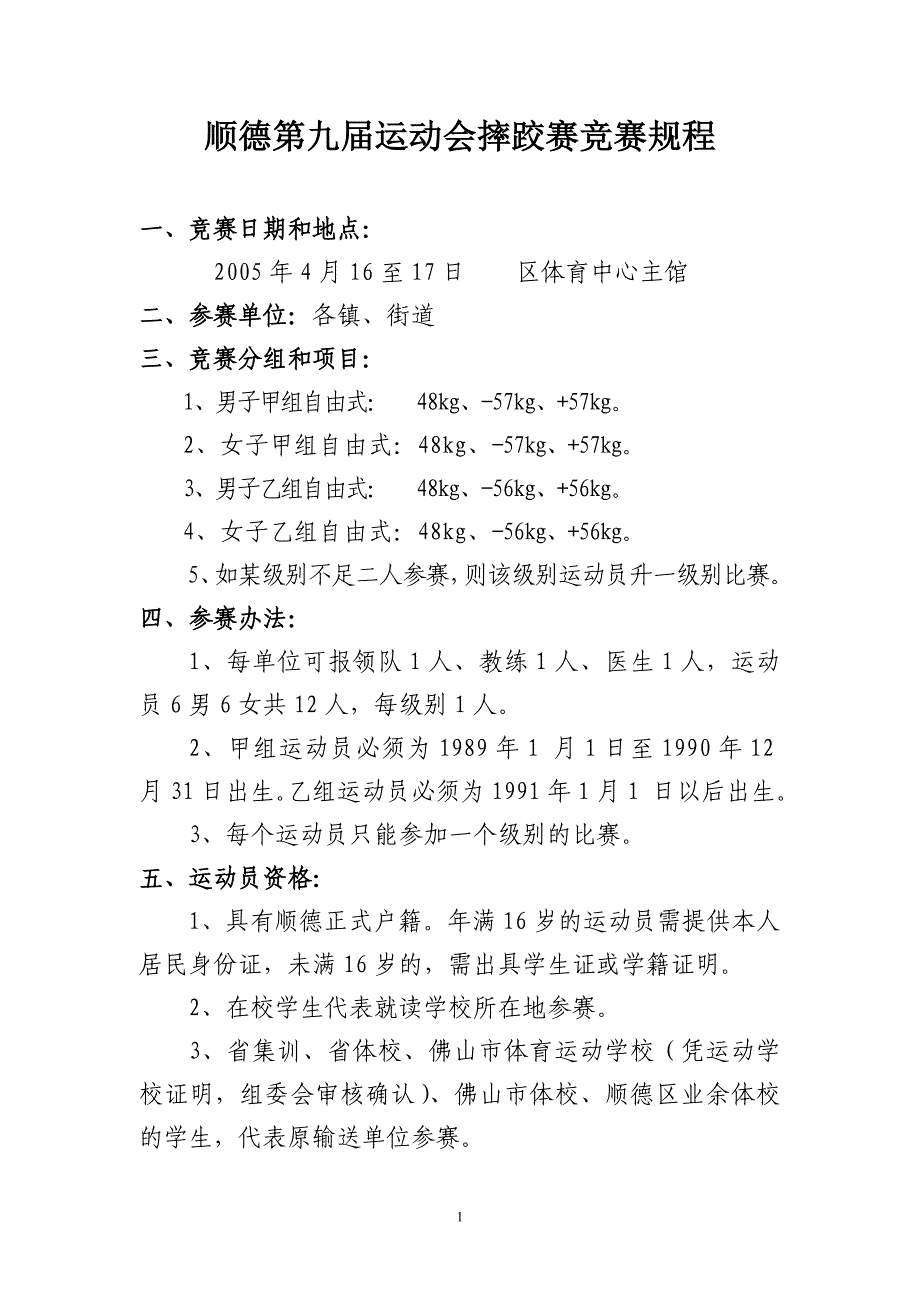 顺德第九届运动会摔跤赛竞赛规程
一、竞赛日期和地点：
2005年4月16至17日　　区体育中心主馆
二、参赛单位：各镇、街道
三、竞赛分组和项目：
1、男子甲组自由式：　48kg、−57kg、+57kg。
2、女子甲组自由式：48kg、−57kg、+57kg。
3、男子乙组自由式：　48kg、−56kg、+56kg。
4、女子乙组自由式：48kg、−56kg、+56kg。
5、如某级别不足二人参赛，则该级别运动员升一级别比赛。
四、参赛办法：
1、每单位可报领队1人、教练1人、医生1人，运动
员6男6女共12人，每级别1人。
2、甲组运动员必须为1989年1 月1日至1990年12
月31日出生。乙组运动员必须为1991年1月1 日以后出生。
3、每个运动员只能参加一个级别的比赛。
五、运动员资格：
1、具有顺德正式户籍。年满16岁的运动员需提供本人
居民身份证，未满16岁的，需出具学生证或学籍证明。
2、在校学生代表就读学校所在地参赛。
3、省集训、省体校、佛山市体育运动学校（凭运动学
校证明，组委会审核确认）、佛山市体校、顺德区业余体校
的学生，代表原输送单位参赛。
1